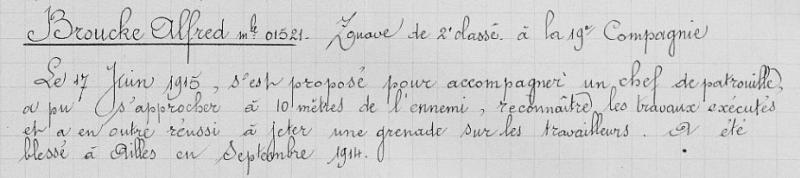 Broucke Alfred mle 01521. Zouave de 2e classe. à la 19e Compagnie
Le 17 Juin 1915, s'est proposé pour accompagner un chef de patrouille,
a pu s'approcher à 10 mètres de l'ennemi, reconnaître les travaux exécutés
et a en outre réussi à jeter une grenade sur les travailleurs. A été
blessé à Ailles en Septembre 1914.